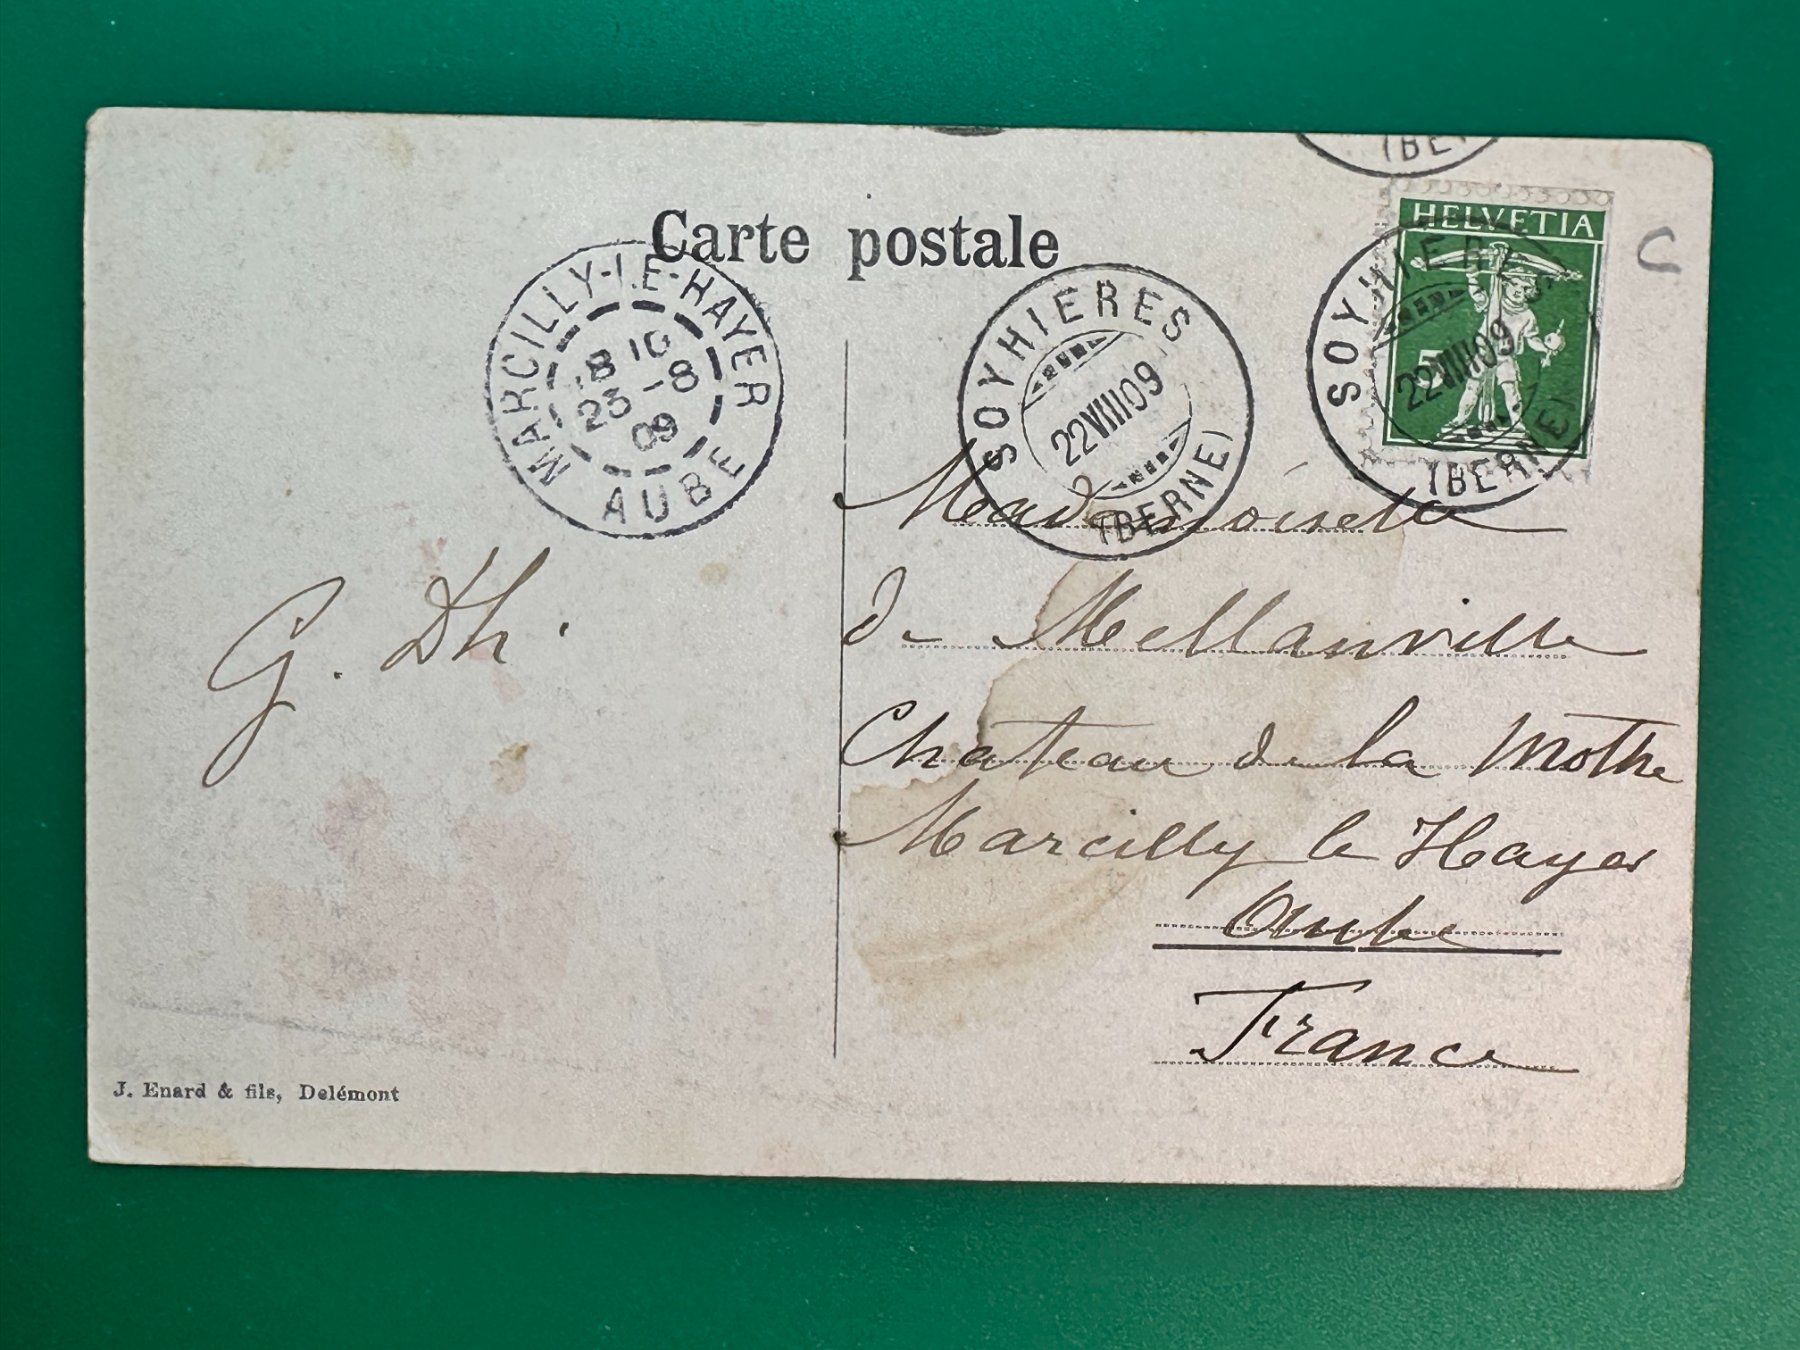 (BE
Carte postale
HELVETIA
5
C
SOYHIERES
22 VIII 09
(BERNE)
SOYHIERES
22 VIII 09
(BERNE)
MARCILLY-LE-HAYER
8 10
23 -8
09
AUBE
G. Dh.
Mademoiselle
de Mellanville
Chateau de la Mothe
Marcilly le Hayer
Aube
France
J. Enard & fils, Delémont